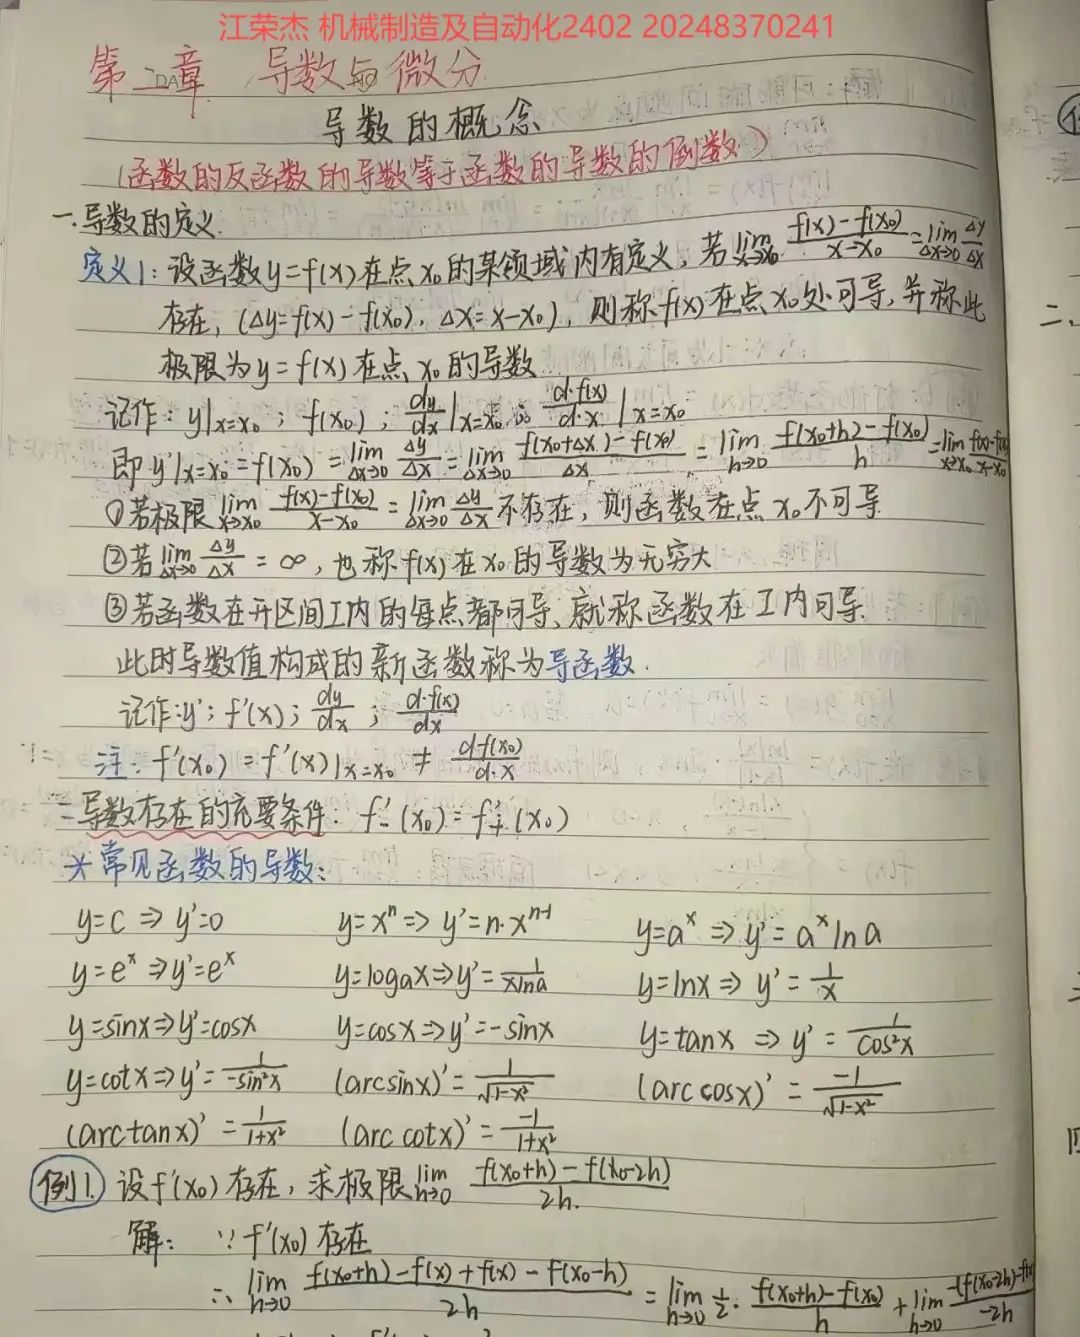 江荣杰 机械制造及自动化2402 20248370241
第二章 导数与微分
导数的概念
(函数的反函数的导数等于函数的导数的倒数.)
一.导数的定义.
定义1: 设函数y=f(x)在点x₀的某领域内有定义, 若lim x→x₀ (f(x)-f(x₀))/(x-x₀) = lim Δx→0 Δy/Δx
存在, (Δy=f(x)-f(x₀), Δx=x-x₀), 则称f(x)在点x₀处可导, 并称此
极限为y=f(x)在点x₀的导数
记作: y|x=x₀ ; f(x₀) ; dy/dx|x=x₀ ; d·f(x)/d·x |x=x₀
即 y'|x=x₀ =f(x₀) = lim Δx→0 Δy/Δx = lim Δx→0 (f(x₀+Δx)-f(x₀))/Δx = lim h→0 (f(x₀+h)-f(x₀))/h = lim x→x₀ (f(x)-f(x₀))/(x-x₀)
①若极限 lim x→x₀ (f(x)-f(x₀))/(x-x₀) = lim Δx→0 Δy/Δx 不存在, 则函数在点x₀不可导
②若 lim Δx→0 Δy/Δx = ∞, 也称f(x)在x₀的导数为无穷大
③若函数在开区间I内的每点都可导、就称函数在I内可导.
此时导数值构成的新函数称为导函数.
记作:y'; f'(x); dy/dx ; d·f(x)/dx
注: f'(x₀) = f'(x)|x=x₀ ≠ d·f(x₀)/d·x
二导数存在的充要条件: f'₋(x₀)=f'₊(x₀)
*常见函数的导数:
y=C ⇒ y'=0 y=xⁿ ⇒ y'=n·xⁿ⁻¹ y=aˣ ⇒ y'=aˣlna
y=eˣ ⇒ y'=eˣ y=logax ⇒ y'=1/(xlna) y=lnx ⇒ y'=1/x
y=sinx ⇒ y'=cosx y=cosx ⇒ y'=-sinx y=tanx ⇒ y'=1/cos²x
y=cotx ⇒ y'=1/-sin²x (arcsinx)'=1/√(1-x²) (arccosx)'=-1/√(1-x²)
(arctanx)'=1/(1+x²) (arccotx)'=-1/(1+x²)
例1. 设f'(x₀)存在, 求极限 lim h→0 (f(x₀+h)-f(x₀-2h))/2h.
解: ∵ f'(x₀)存在
∴ lim h→0 (f(x₀+h)-f(x)+f(x)-f(x₀-h))/2h = lim h→0 1/2·(f(x₀+h)-f(x₀))/h + lim h→0 -(f(x₀-2h)-f(x